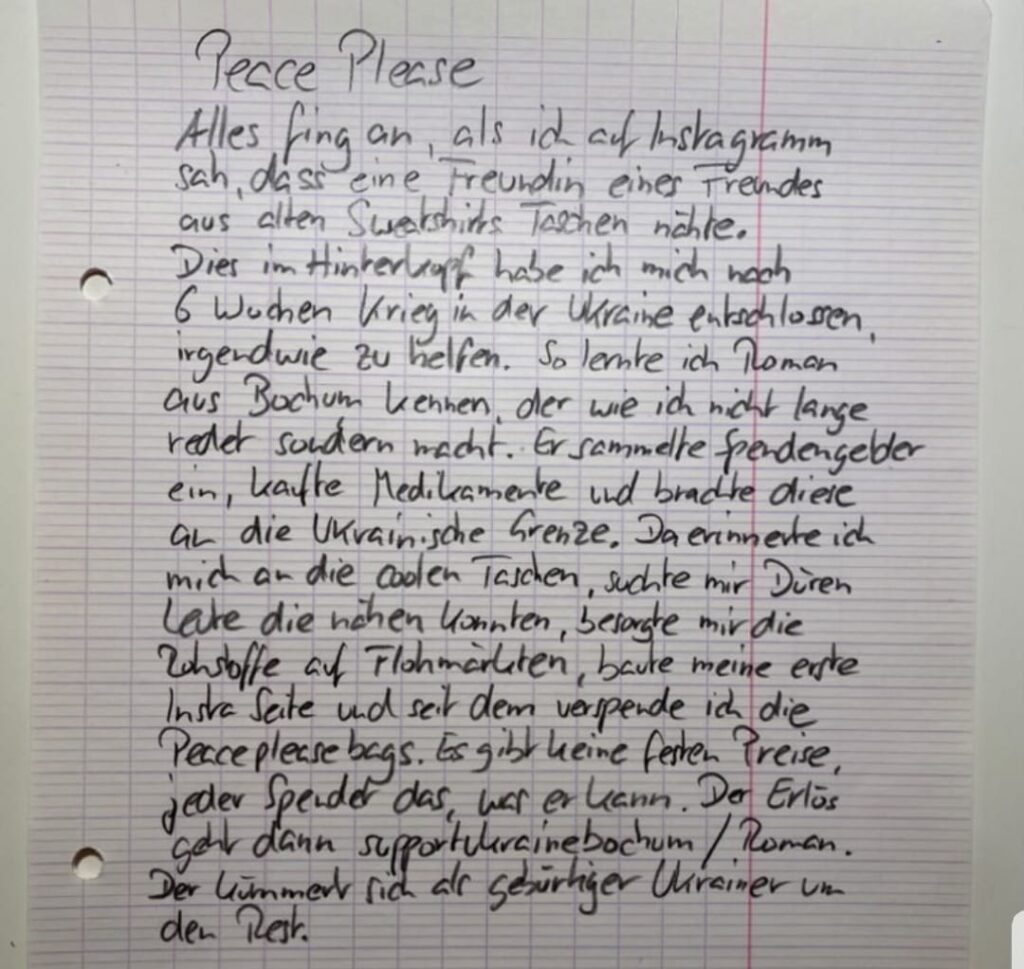 Peace Please
Alles fing an, als ich auf Instagramm
sah, dass eine Freundin eines Freundes
aus alten Sweatshirts Taschen nähte.
Dies im Hinterkopf habe ich mich nach
6 Wochen Krieg in der Ukraine entschlossen,
irgendwie zu helfen. So lernte ich Roman
aus Bochum kennen, der wie ich nicht lange
redet sondern macht. Er sammelte Spendengelder
ein, kaufte Medikamente und brachte diese
an die Ukrainische Grenze. Da erinnerte ich
mich an die coolen Taschen, suchte mir Düren
Leute die nähen konnten, besorgte mir die
Rohstoffe auf Flohmärkten, baute meine erste
Insta Seite und seit dem verspende ich die
Peacepleasebags. Es gibt keine festen Preise,
jeder Spendet das, was er kann. Der Erlös
geht dann supportukrainebochum / Roman.
Der kümmert sich als gebürtiger Ukrainer um
den Rest.